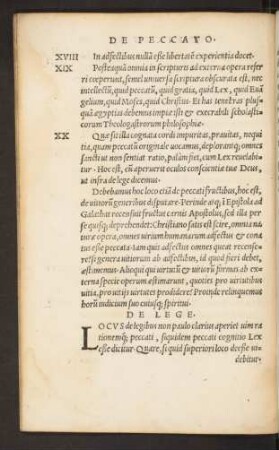 DE PECCATO.
XVIII In adfectibus nullã esse libertatẽ experientia docet.
XIX Posteaquã omnia in scripturis ad externa opera refer
ri cœperunt, semel universa scriptura obscurata est, nec
intellectũ, quid peccatũ, quid gratia, quid Lex, quid Euã
gelium, quid Moses, quid Christus. Et has tenebras plus
quã ægyptias debemus impiæ isti & execrabili scholasti
corum Theologastrorum philosophiæ.
XX Quæ sit illa cognata cordi impuritas, prauitas, nequi
tia, quam peccatũ originale uocamus, deploramusq́; omnes
sancti ut non sentiat ratio, palàm fiet, cum Lex reuelabi
tur. Hoc est, cũ aperuerit oculos conscientiæ tuæ Deus,
ut infra de lege dicemus.
Debebamus hoc loco etiã de peccati fructibus, hoc est,
de uitiorũ generibus disputare. Perinde atq; in Epistola ad
Galathas recensuit fructus carnis Apostolus, sed illa per
se quisq; deprehendet: Christiano satis est scire, omnia na
turæ opera, omnes uirium humanarum adfectus & cona
tus esse peccata. Iam quis adfectus omnes queat recense-
re? si genera uitiorum ab adfectibus, id quod fieri debet,
æstimemus. Alioqui qui uirtutũ & uitiorũ formas ab ex
terna specie operum æstimarunt, quoties pro uirtutibus
uitia, pro uitijs uirtutes prodidere? Proinde relinquemus
horũ iudicium suo cuiusq; spiritui.
DE LEGE.
LOCVS de legibus non paulo clarius aperiet uim ra
tionemq́; peccati, siquidem peccati cognitio Lex
esse dicitur. Quare, si quid superiori loco deesse ui-
debitur,